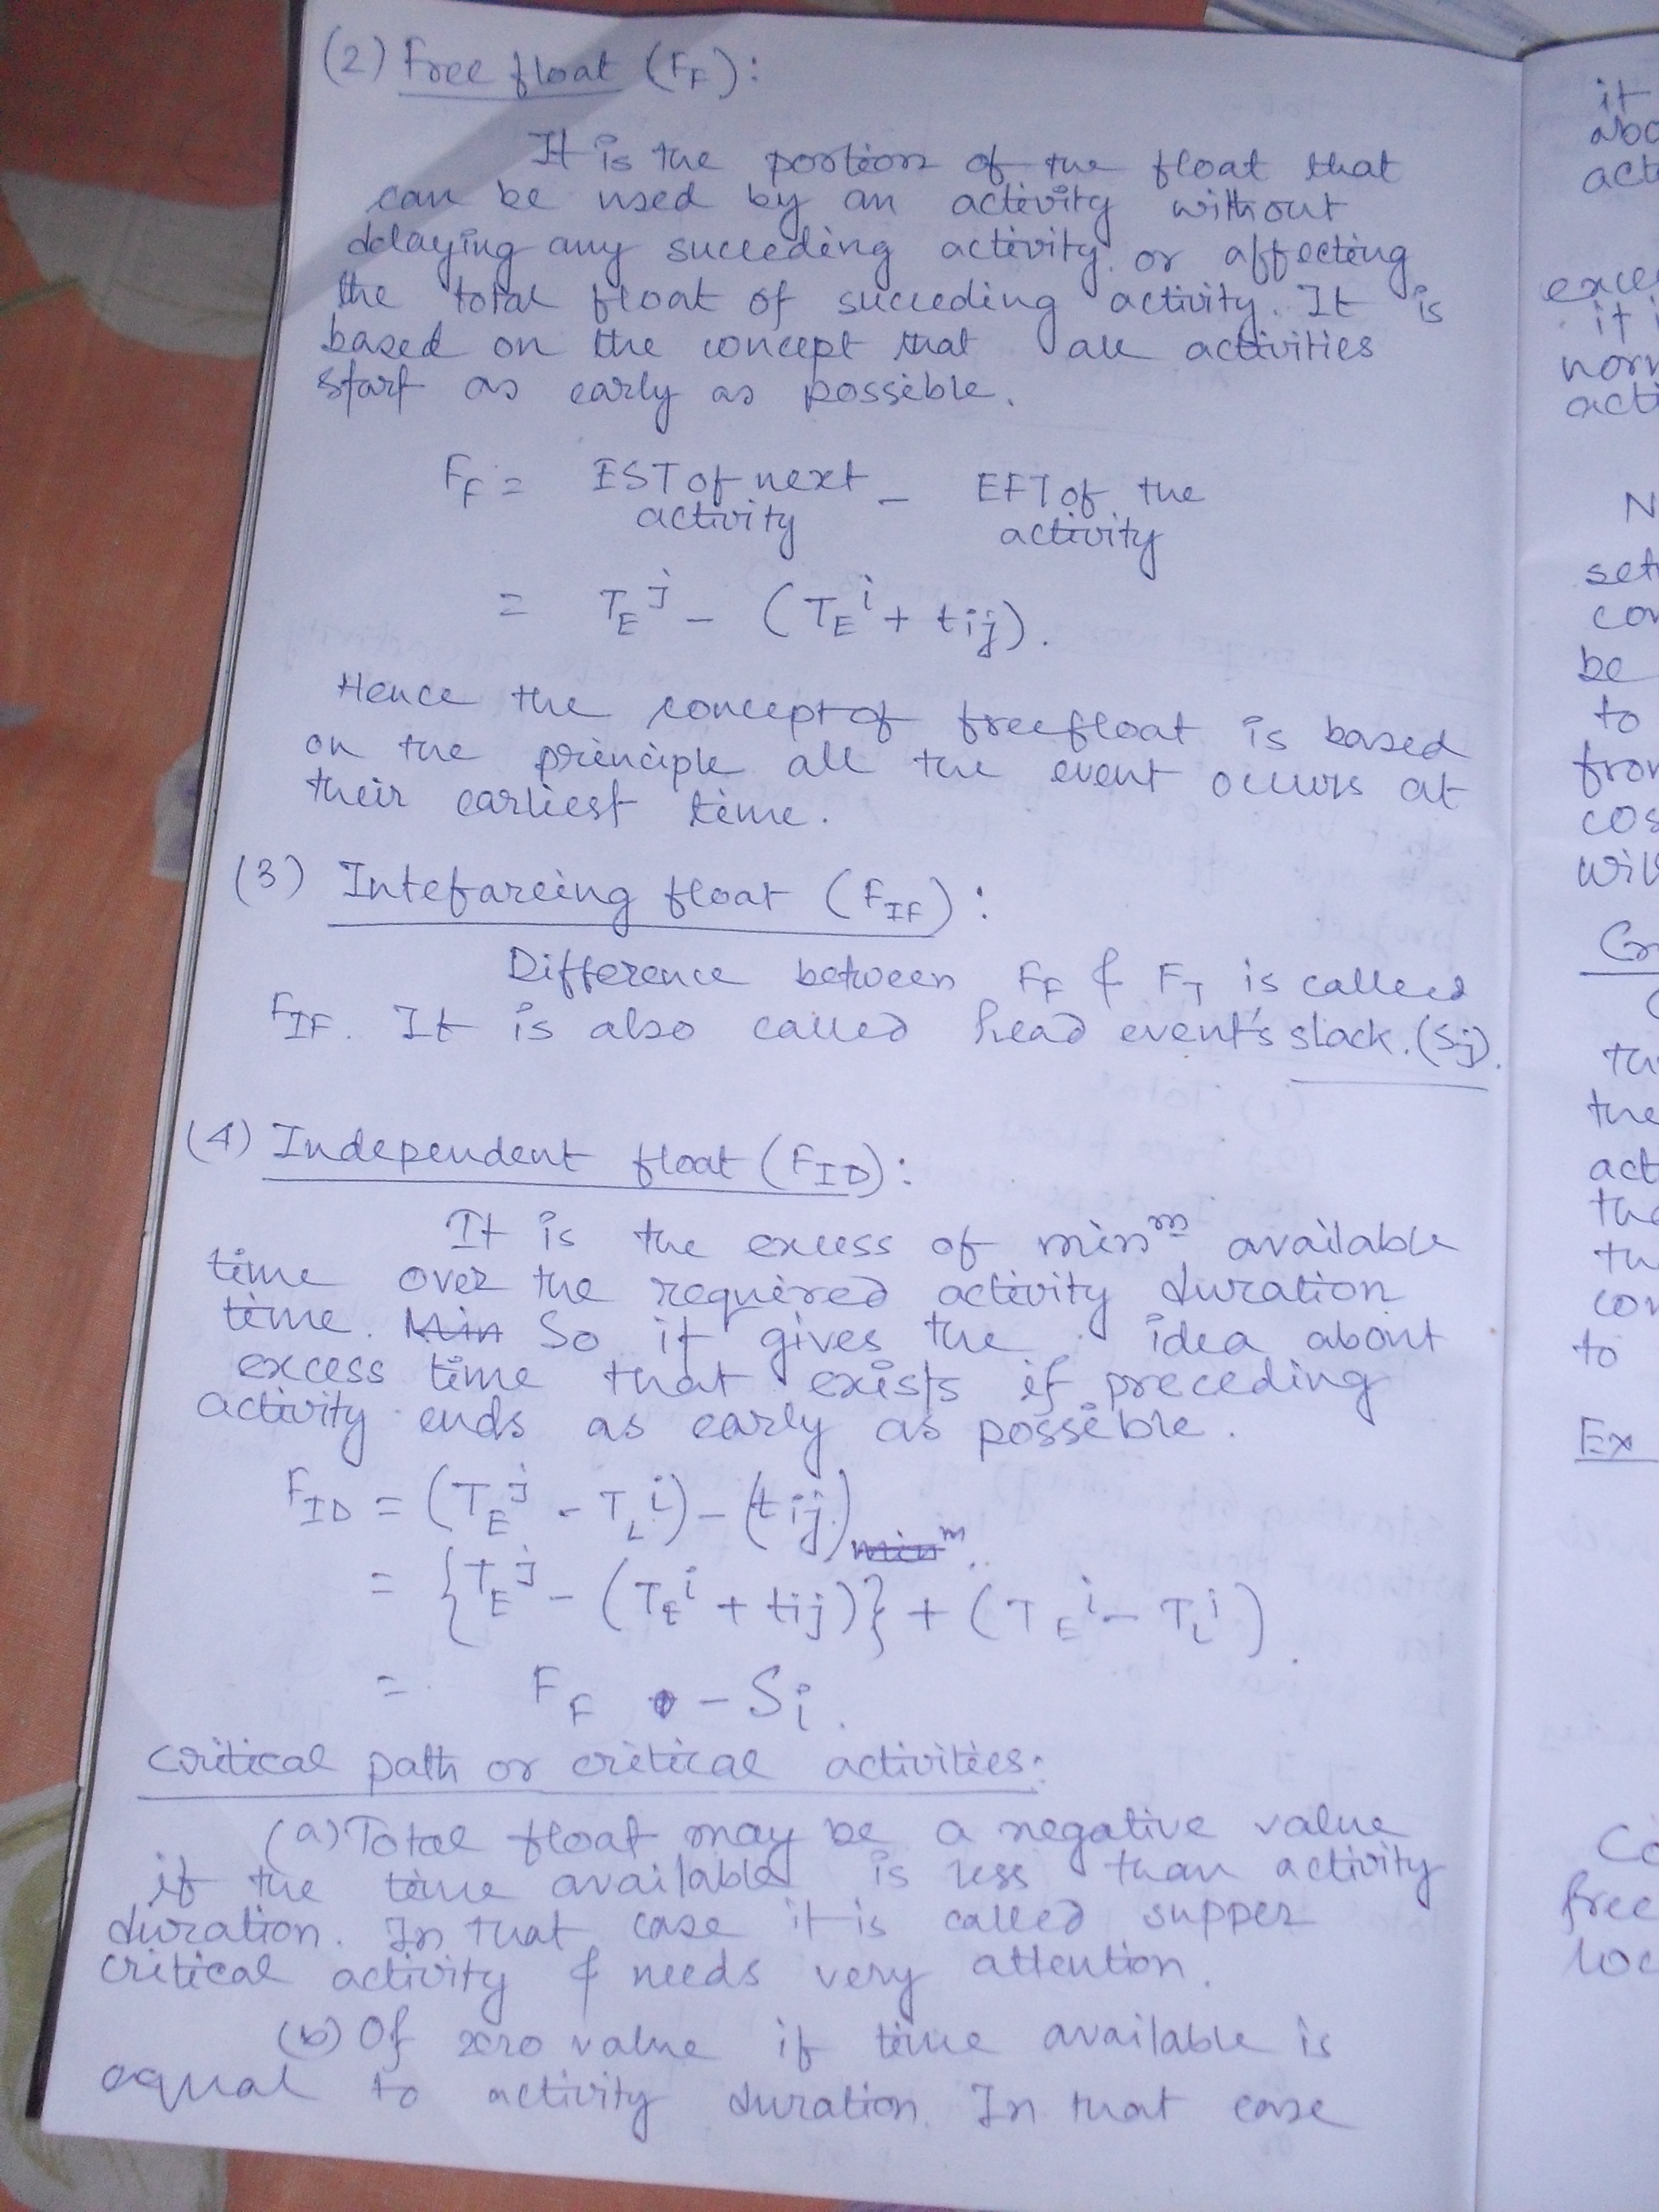 (2) Free float (F_F):
It is the portion of the float that
can be used by an activity without
delaying any succeding activity or affecting
the total float of succeding activity. It is
based on the concept that all activities
start as early as possible.
F_F = EST of next activity - EFT of the activity
= T_E^j - (T_E^i + tij).
Hence the concept of free float is based
on the principle all the event occurs at
their earliest time.
(3) Intefareing float (F_IF):
Difference between F_F & F_T is called
F_IF. It is also called head event's slack. (Sj).
(4) Independent float (F_ID):
It is the excess of min^m available
time over the required activity duration
time. Min So it gives the idea about
excess time that exists if preceding
activity ends as early as possible.
F_ID = (T_E^j - T_L^i) - (tij) min^m.
= {T_E^j - (T_E^i + tij)} + (T_E^i - T_L^i).
= F_F - Si.
Critical path or critical activities:
(a) Total float may be a negative value
if the time available is less than activity
duration. In that case it is called supper
critical activity & needs very attention.
(b) Of zero value if time available is
equal to activity duration. In that case
it
exce
it i
N
be
to
Ex
to